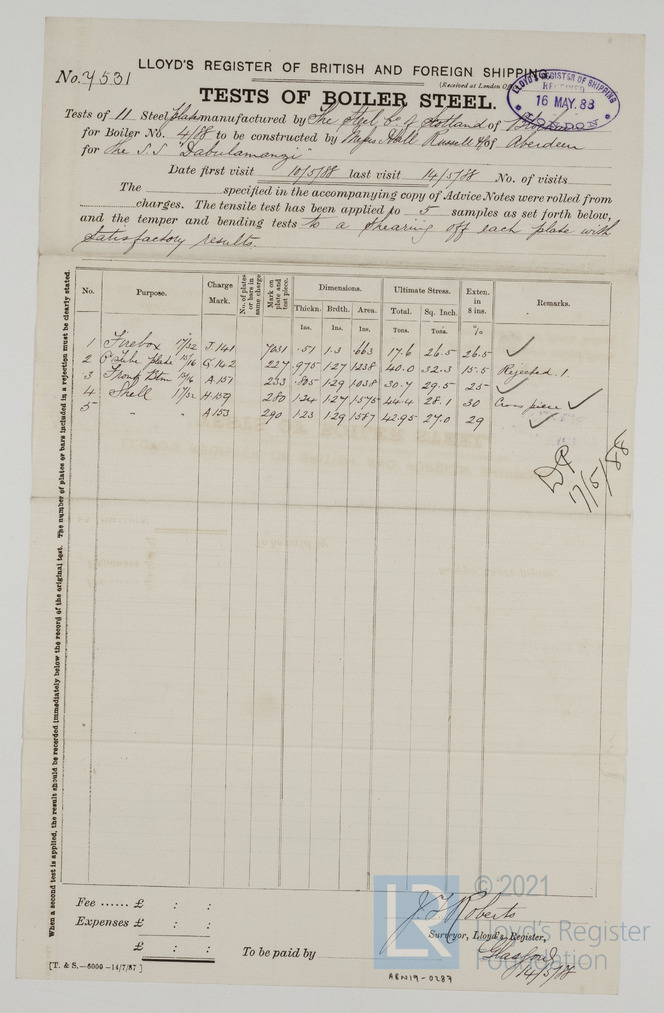 LLOYD'S REGISTER OF BRITISH AND FOREIGN SHIPPING
No. 7531
(Received at London Of
LLOYD'S REGISTER OF SHIPPING RECEIVED 16 MAY. 88 LONDON
TESTS OF BOILER STEEL.
Tests of 11 Steel Plates manufactured by The Steel Co of Scotland of
for Boiler No. 4/88 to be constructed by Messrs Hall Russell & Co of Aberdeen
for the S.S "Dabulamanzi"
Date first visit 10/5/88 last visit 14/5/88 No. of visits
The specified in the accompanying copy of Advice Notes were rolled from
charges. The tensile test has been applied to 5 samples as set forth below,
and the temper and bending tests to a shearing off each plate with
satisfactory results.
When a second test is applied, the result should be recorded immediately below the record of the original test. The number of plates or bars included in a rejection must be clearly stated.
No. Purpose. Charge Mark. No. of plates or bars in same charge Mark on plate and test piece. Dimensions. Ultimate Stress. Exten. in 8 ins. Remarks.
Thickn. Brdth. Area. Total. Sq. Inch.
Ins. Ins. Ins. Tons. Tons. %
1 Firebox 17/32 J.141 7031 .51 1.3 .663 17.6 26.5 26.5 ✓
2 plate 15/16 G.142 227 .975 1.27 1.238 40.0 32.3 15.5 Rejected. 1.
3 Front Btm 13/16 A.157 233 .805 1.29 1.038 30.7 29.5 25 ✓
4 Shell 17/32 H.159 280 1.24 1.27 1.575 44.4 28.1 30 Cross piece ✓
5 " " A.153 290 1.23 1.29 1.587 42.95 27.0 29 ✓
17/5/88
Fee ...... £ : :
Expenses £ : :
£ : :
To be paid by
J Roberts
Surveyor, Lloyd's Register,
Glasgow
14/5/88
[T. & S.—6000—14/7/87]
ABN19-0287
LR
© 2021
Lloyd's Register
Foundation